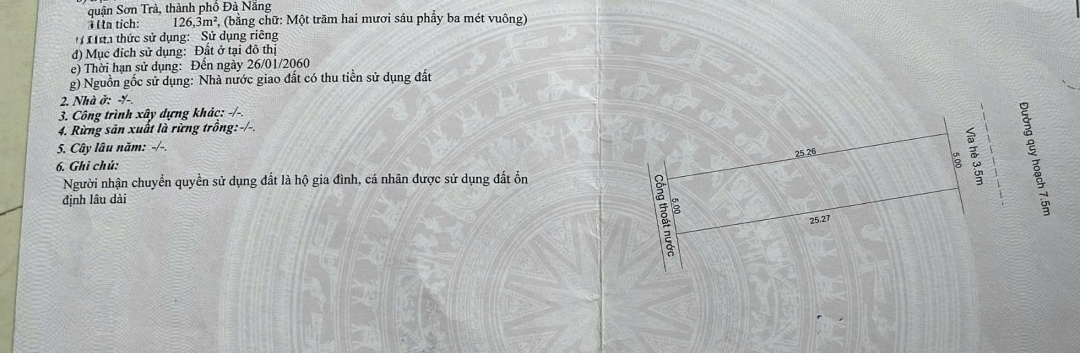 quận Sơn Trà, thành phố Đà Nẵng
tích: 126,3m², (bằng chữ: Một trăm hai mươi sáu phẩy ba mét vuông)
thức sử dụng: Sử dụng riêng
đ) Mục đích sử dụng: Đất ở tại đô thị
e) Thời hạn sử dụng: Đến ngày 26/01/2060
g) Nguồn gốc sử dụng: Nhà nước giao đất có thu tiền sử dụng đất
2. Nhà ở: -/-.
3. Công trình xây dựng khác: -/-.
4. Rừng sản xuất là rừng trồng:-/-.
5. Cây lâu năm: -/-.
6. Ghi chú:
Người nhận chuyển quyền sử dụng đất là hộ gia đình, cá nhân được sử dụng đất ổn
định lâu dài
25.26
5.00
Cống thoát nước
25.27
5.00
Vỉa hè 3.5m
Đường quy hoạch 7.5m